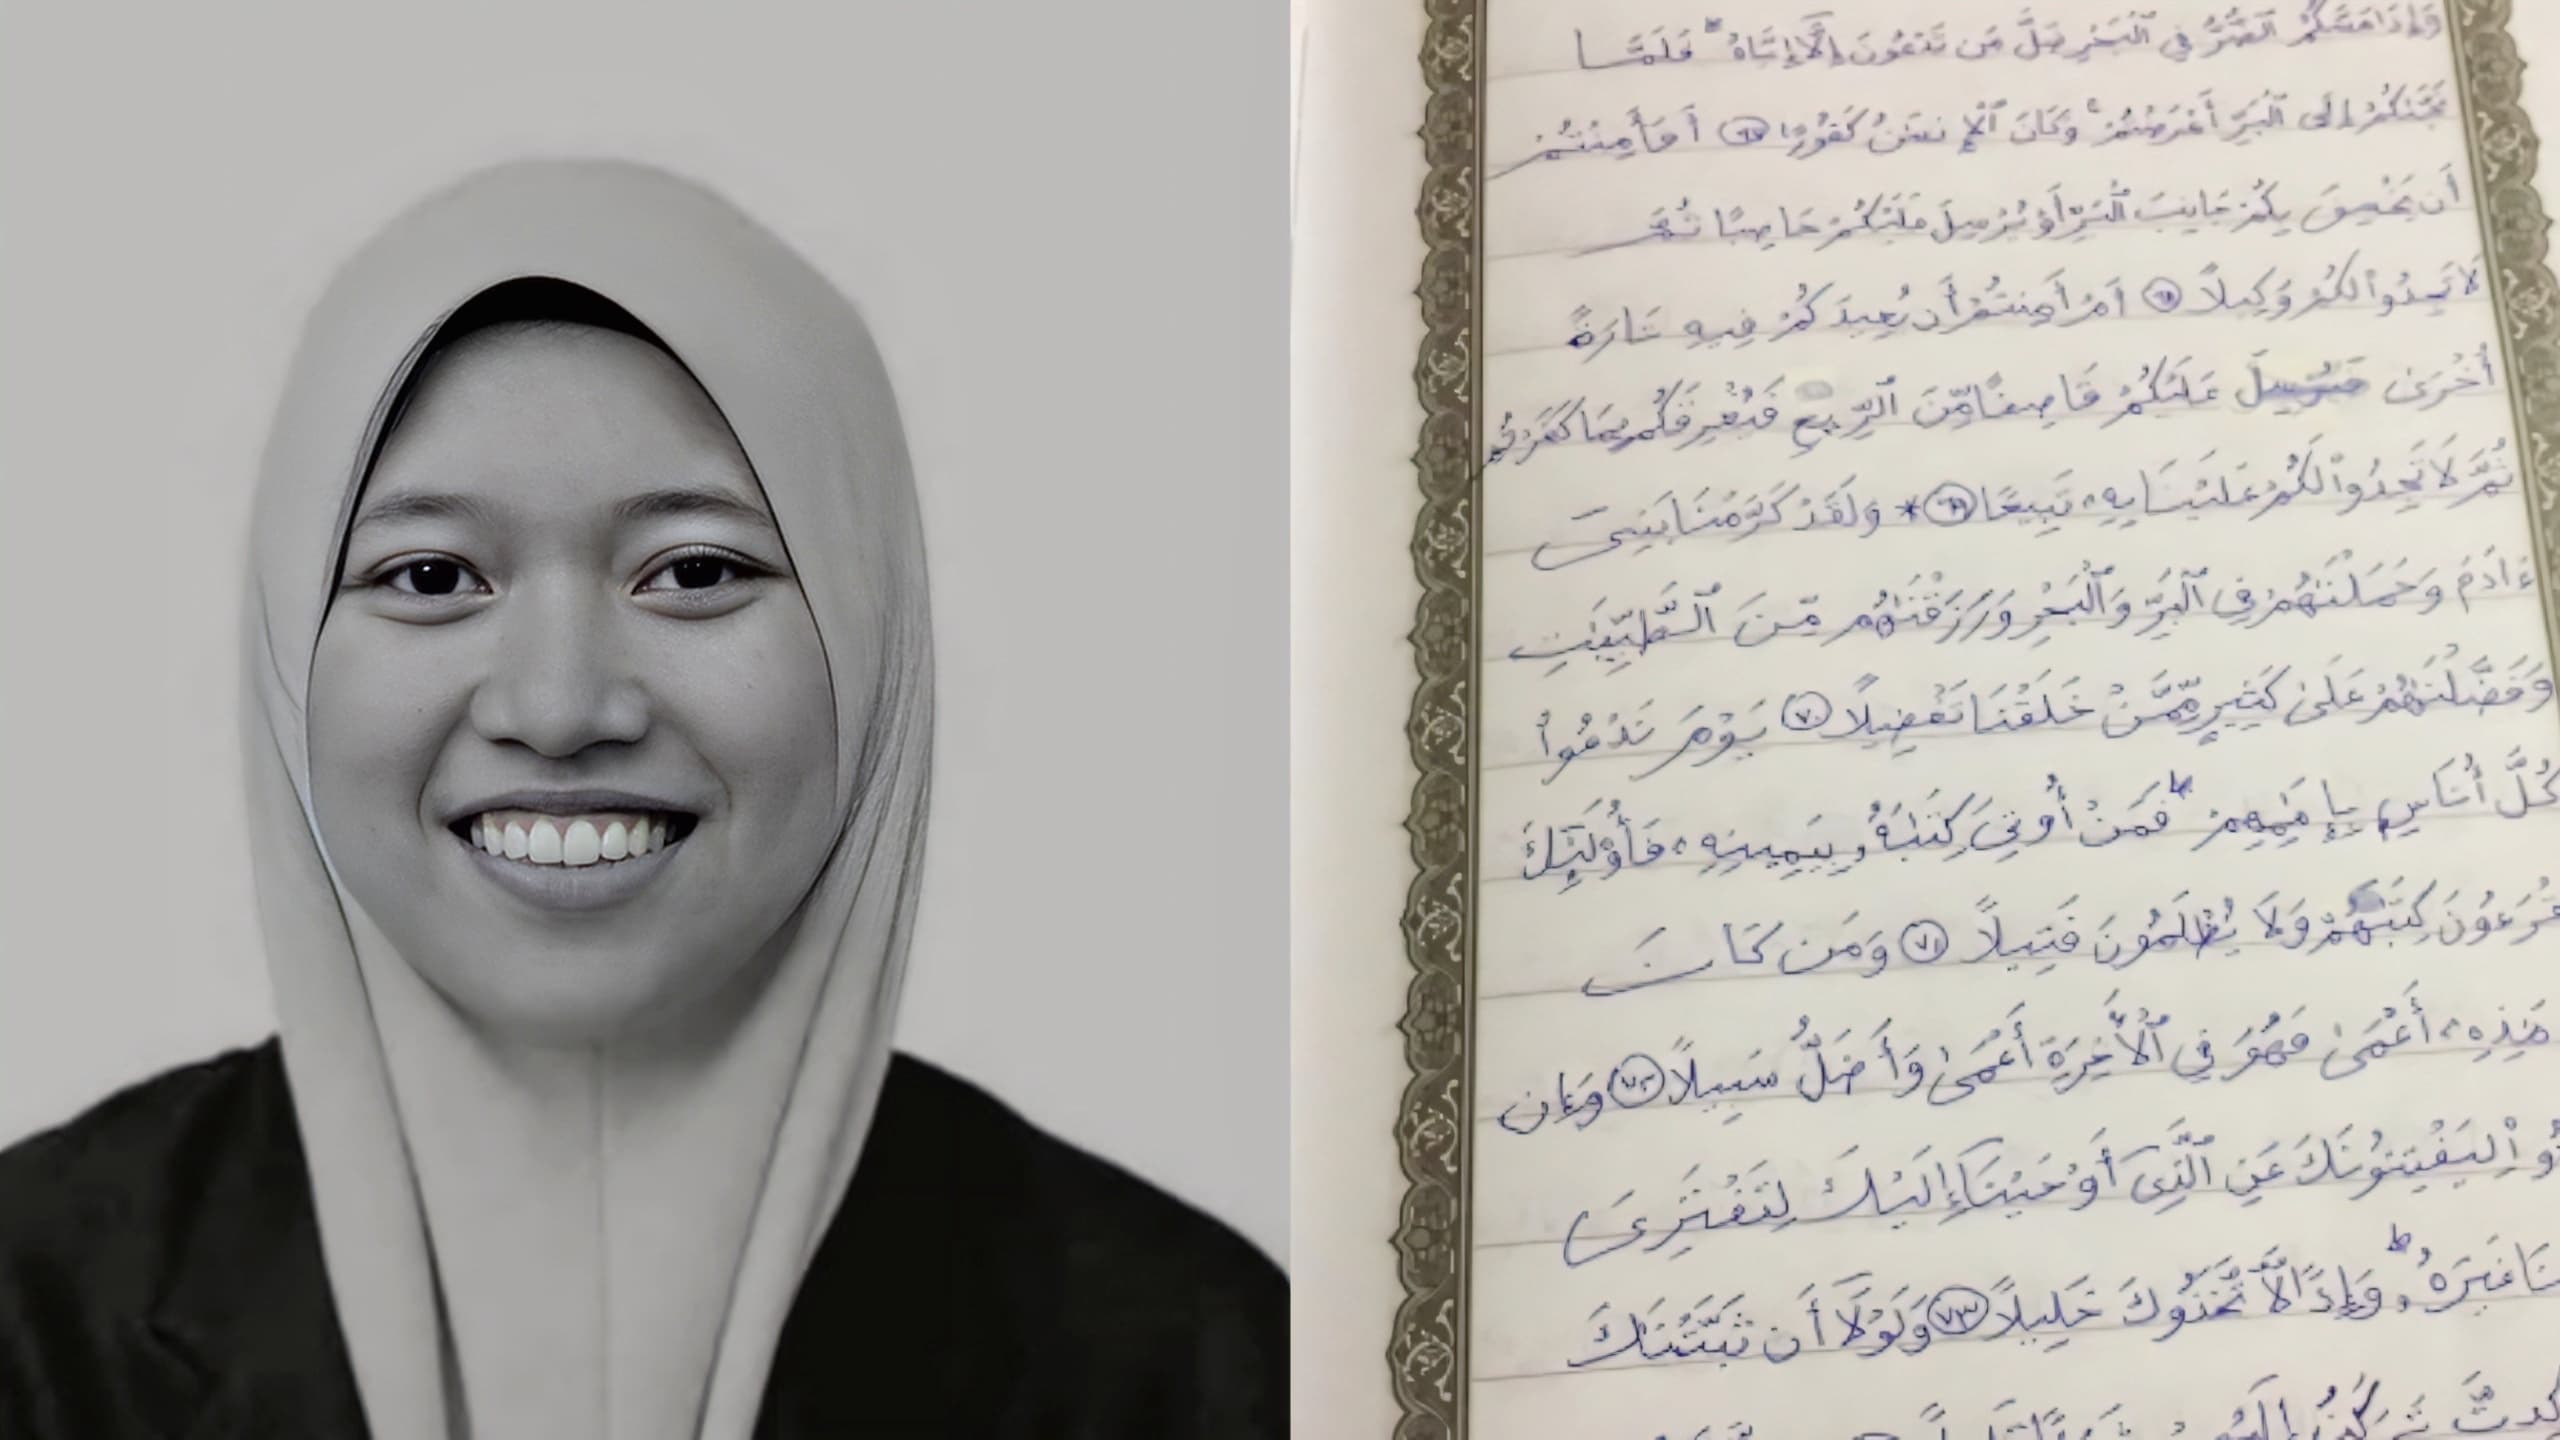 وَإِذَا مَسَّكُمُ ٱلضُّرُّ فِي ٱلْبَحْرِ ضَلَّ مَن تَدْعُونَ إِلَّآ إِيَّاهُ ۖ فَلَمَّا
نَجَّىٰكُمْ إِلَى ٱلْبَرِّ أَعْرَضْتُمْ ۚ وَكَانَ ٱلْإِنسَٰنُ كَفُورًا ٦٧ أَفَأَمِنتُمْ
أَن يَخْسِفَ بِكُمْ جَانِبَ ٱلْبَرِّ أَوْ يُرْسِلَ عَلَيْكُمْ حَاصِبًا ثُمَّ
لَا تَجِدُوا۟ لَكُمْ وَكِيلًا ٦٨ أَمْ أَمِنتُمْ أَن يُعِيدَكُمْ فِيهِ تَارَةً
أُخْرَىٰ فَيُرْسِلَ عَلَيْكُمْ قَاصِفًا مِّنَ ٱلرِّيحِ فَيُغْرِقَكُم بِمَا كَفَرْتُمْ
ثُمَّ لَا تَجِدُوا۟ لَكُمْ عَلَيْنَا بِهِۦ تَبِيعًا ٦٩ * وَلَقَدْ كَرَّمْنَا بَنِىٓ
ءَادَمَ وَحَمَلْنَٰهُمْ فِي ٱلْبَرِّ وَٱلْبَحْرِ وَرَزَقْنَٰهُم مِّنَ ٱلطَّيِّبَٰتِ
وَفَضَّلْنَٰهُمْ عَلَىٰ كَثِيرٍ مِّمَّنْ خَلَقْنَا تَفْضِيلًا ٧٠ يَوْمَ نَدْعُوا۟
كُلَّ أُنَاسٍ بِإِمَٰمِهِمْ ۖ فَمَنْ أُوتِيَ كِتَٰبَهُۥ بِيَمِينِهِۦ فَأُو۟لَٰٓئِكَ
يَقْرَءُونَ كِتَٰبَهُمْ وَلَا يُظْلَمُونَ فَتِيلًا ٧١ وَمَن كَانَ
هَٰذِهِۦٓ أَعْمَىٰ فَهُوَ فِي ٱلْأٓخِرَةِ أَعْمَىٰ وَأَضَلُّ سَبِيلًا ٧٢ وَإِن
لَيَفْتِنُونَكَ عَنِ ٱلَّذِىٓ أَوْحَيْنَآ إِلَيْكَ لِتَفْتَرِىَ
غَيْرَهُۥ ۖ وَإِذًا لَّٱتَّخَذُوكَ خَلِيلًا ٧٣ وَلَوْلَآ أَن ثَبَّتْنَٰكَ